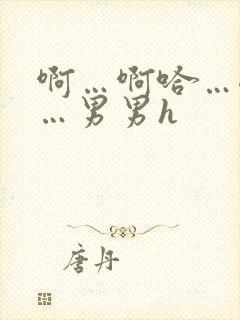 啊…啊哈…
…男男h
唐丹